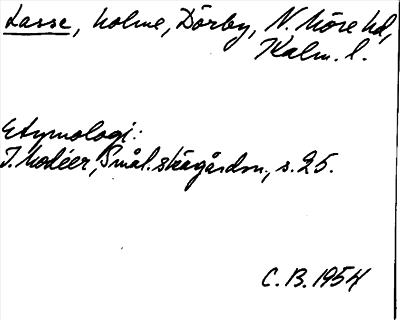 Lasse, holme, Dörby, N. Möre hd,
Kalm. l.
Etymologi:
I. Modéer, Smål. skärgårdsn., s. 25.
C. B. 1954